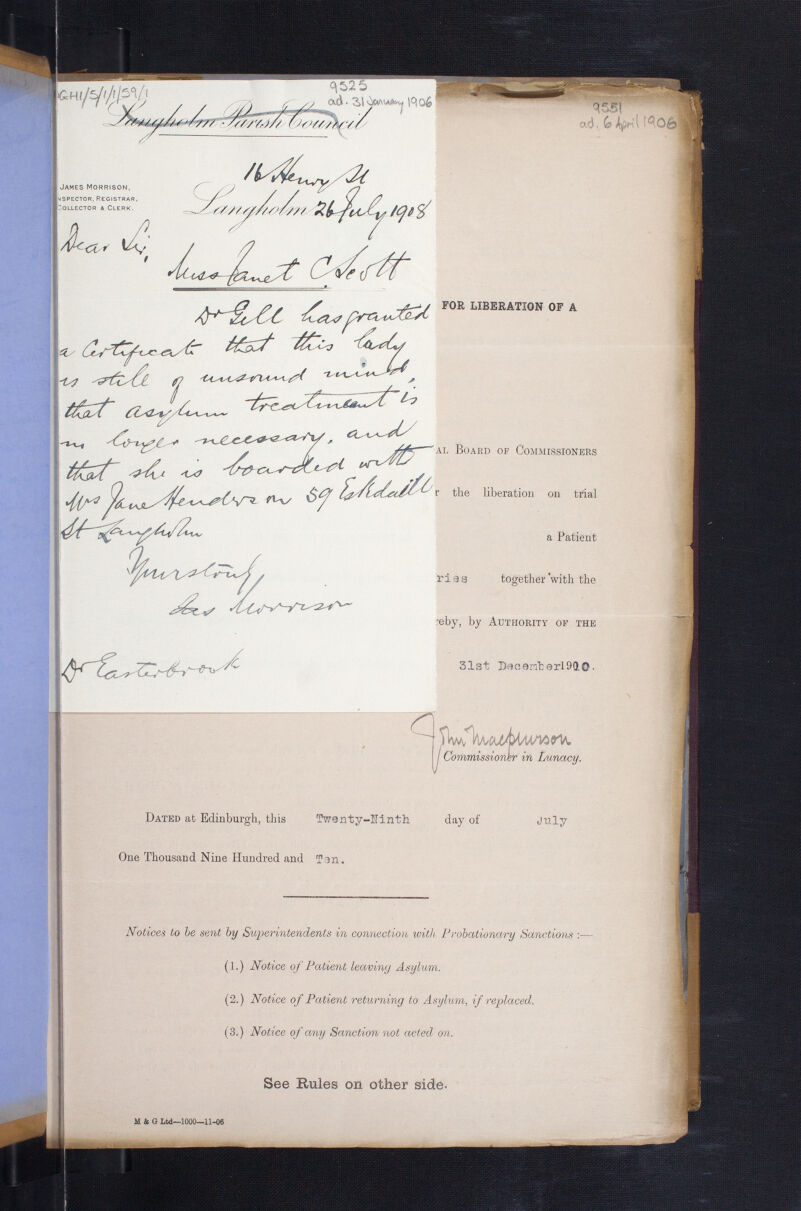 DGH1/5/1/1/59/1
9525
ad. 31 January 1906
Langholm Parish Council
JAMES MORRISON,
INSPECTOR, REGISTRAR,
COLLECTOR & CLERK.
16 Henry St
Langholm 26 July 1908
Dear Sir,
Miss Janet C. Scott
Dr Gill has granted
a Certificate that this lady
is still of unsound mind,
that asylum treatment is
no longer necessary, and
that she is boarded with
Mrs Jane Henderson 59 Eskdaill
St Langholm
Yours truly,
Jas Morrison
Dr Easterbrook
9551
ad. 6 April 1906
FOR LIBERATION OF A
AL BOARD OF COMMISSIONERS
r the liberation on trial
a Patient
ries together with the
reby, by AUTHORITY OF THE
31st December 1910.
John Macpherson
Commissioner in Lunacy.
DATED at Edinburgh, this Twenty-Ninth day of July
One Thousand Nine Hundred and Ten.
Notices to be sent by Superintendents in connection with Probationary Sanctions :—
(1.) Notice of Patient leaving Asylum.
(2.) Notice of Patient returning to Asylum, if replaced.
(3.) Notice of any Sanction not acted on.
See Rules on other side.
M & G Ltd—1000—11-06